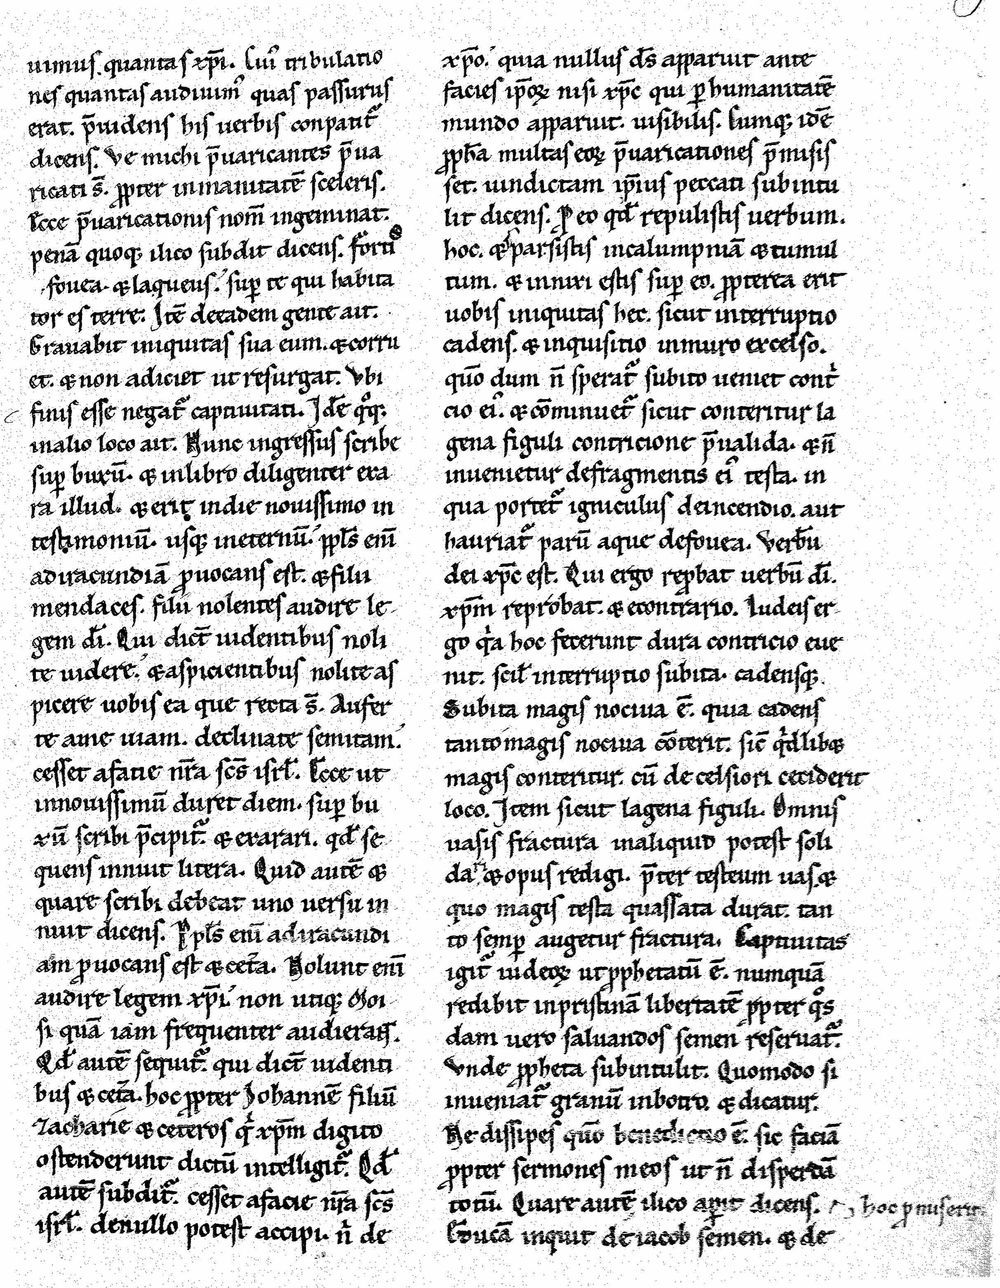 uimus. quantas xp̄i. Cui᷒ tribulatio
nes quantas audiuim᷒ quas passurus
erat. p̄uidens his uerbis conpatit᷑
dicens. Ve michi p̄uaricantes p̄ua
ricati s̄. ꝓpter inmanitatē sceleris.
Ecce p̄uaricationis nom̄ ingeminat.
penā quoq; ilico subdit dicens. Formido
fouea. ⁊ laqueus. sup̱ te qui habita
tor es terre. Itē de eadem gente ait.
Grauabit iniquitas sua eum. ⁊ corru
et. ⁊ non adiciet ut resurgat. Vbi
finis esse negat᷑ captiuitati. Idē q᷒q;
in alio loco ait. Nunc ingressus scribe
sup̱ buxū. ⁊ in libro diligenter exa
ra illud. ⁊ erit in die nouissimo in
testimoniū. usq; in eternū. ppl̄s enī
ad iracundiā ꝓuocans est. ⁊ filii
mendaces. filii nolentes audire le
gem dī. Qui dict̄ uidentibus noli
te uidere. ⁊ aspicientibus nolite as
picere uobis ea que recta s̄. Aufer
te a me uiam. declinate semitam.
cesset a facie nr̄a sc̄s isrl̄. Ecce ut
in nouissimū duret diem. sup̱ bu
xū scribi p̄cipit᷑. ⁊ exarari. qd̄ se
quens innuit litera. Quid autē ⁊
quare scribi debeat uno uersu in
nuit dicens. Ppl̄s enī ad iracundi
am ꝓuocans est ⁊ cet̄a. Nolunt enī
audire legem xp̄i. non utiq; Moi
si quā iam frequenter audierant.
Qd̄ autē sequit᷑. qui dict̄ uidenti
bus ⁊ cet̄a. hoc ꝓpter Johannē filiū
Zacharie ⁊ ceteros qͥ xp̄m digito
ostenderunt dictū intelligit᷑. Qd̄
autē subdit᷑. cesset a facie nr̄a sc̄s
isrl̄. de nullo potest accipi. nͥ de
xp̄o. quia nullus ds̄ apparuit ante
facies ip̄oꝝ nisi xp̄c qui ꝑ humanitatē
mundo apparuit. uisibilis. Cumq; idē
ꝓph̄a multas eoꝝ p̄uaricationes p̄misis
set. uindictam ip̄ius peccati subintu
lit dicens. P eo qd̄ repulistis uerbum.
hoc. ⁊ sparsistis in calumpniā ⁊ tumul
tum. ⁊ innixi estis sup̱ eo. ꝓpterea erit
uobis iniquitas hec. sicut interruptio
cadens. ⁊ inquisitio in muro excelso.
quō dum n̄ sperat᷑ subito ueniet contͥ
cio ei᷒. ⁊ cōminuet᷑ sicut conteritur la
gena figuli contricione p̄ualida. ⁊ n̄
inuenietur de fragmentis ei᷒ testa. in
qua portet᷑ igniculus de incendio. aut
hauriat᷑ parū aque de fouea. Verbū
dei xp̄c est. Qui ergo reꝓbat uerbū dī.
xp̄m reprobat. ⁊ econtrario. Iudeis er
go qͥa hoc fecerunt dura contricio eue
nit. scil̄ interruptio subita. cadensq;.
Subita magis nociua ē. quia cadens
tanto magis nociua cōterit. sic̄ qͥdlib⁊
magis conteritur. cū de celsiori ceciderit
loco. Item sicut lagena figuli. Omnis
uasis fractura in aliquid potest soli
dari ⁊ opus redigi. p̄ter testeum uas. ⁊
quo magis testa quassata durat. tan
to semp̱ augetur fractura. Captiuitas
igit᷑ iudeoꝝ ut ꝓphetatū ē. numquā
redibit in pristinā libertatē ꝓpter qͦs
dam uero saluandos semen reseruat᷑.
Vnde ꝓpheta subintulit. Quomodo si
inueniat᷑ granū in botro. ⁊ dicatur.
Ne dissipes quō benedictio ē. sic faciā
ꝓpter sermones meos ut n̄ disperdā
totū. Quare autē ilico aꝑit dicens. hoc ꝓmiserit.
Educā inquit de iacob semen. ⁊ de